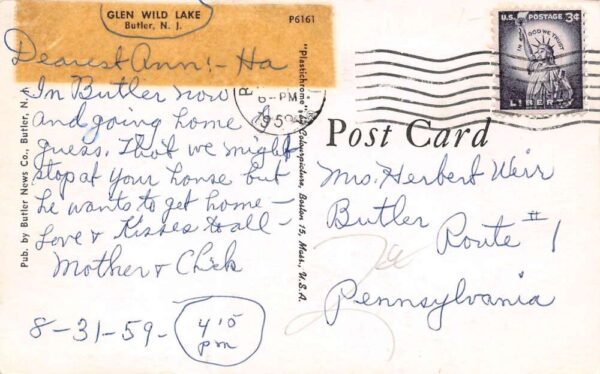 GLEN WILD LAKE
Butler, N. J.
P6161
Dearest Ann! - Ha
In Butler now
and going home I
guess. That we might
stop at your house but
he wants to get home -
Love & Kisses to all -
Mother & Chick
8-31-59-
4:15
pm
Pub. by Butler News Co., Butler, N. J.
"Plastichrome" by Colourpicture, Boston 15, Mass., U.S.A.
PM
Post Card
U.S. POSTAGE 3¢
IN GOD WE TRUST
LIBERTY
Mrs. Herbert Weir
Butler
Route #1
Pennsylvania